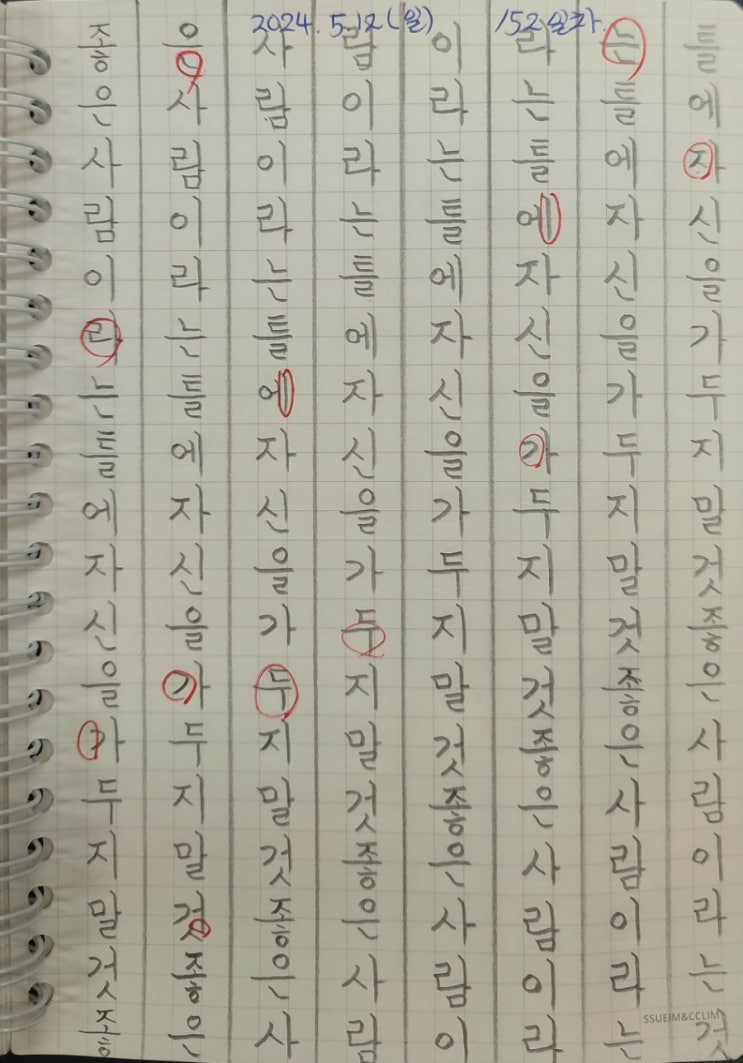 2024. 5.12(일) 152일차
좋은사람이라는틀에자신을가두지말것좋
은사람이라는틀에자신을가두지말것좋은
사람이라는틀에자신을가두지말것좋은사
람이라는틀에자신을가두지말것좋은사람
이라는틀에자신을가두지말것좋은사람이
라는틀에자신을가두지말것좋은사람이라
는틀에자신을가두지말것좋은사람이라는
틀에자신을가두지말것좋은사람이라는것
SSUEIM&CCLIM